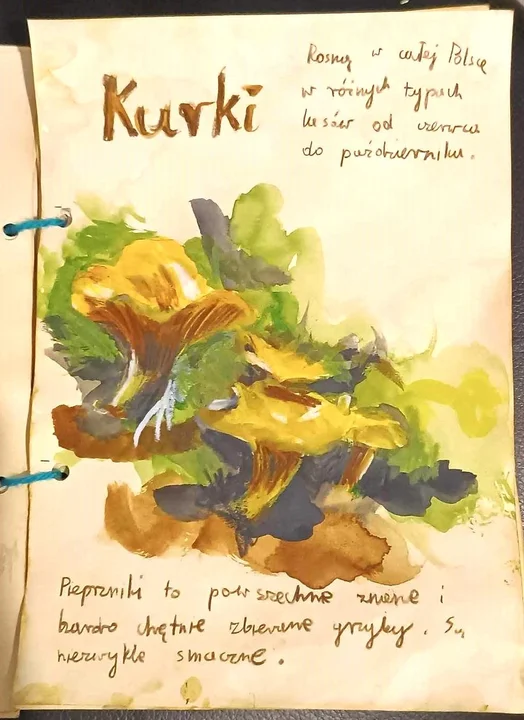 Kurki
Rosną w całej Polsce
w różnych typach
lasów od czerwca
do października.
Pieprzniki to powszechnie znane i
bardzo chętnie zbierane grzyby. Są
niezwykle smaczne.